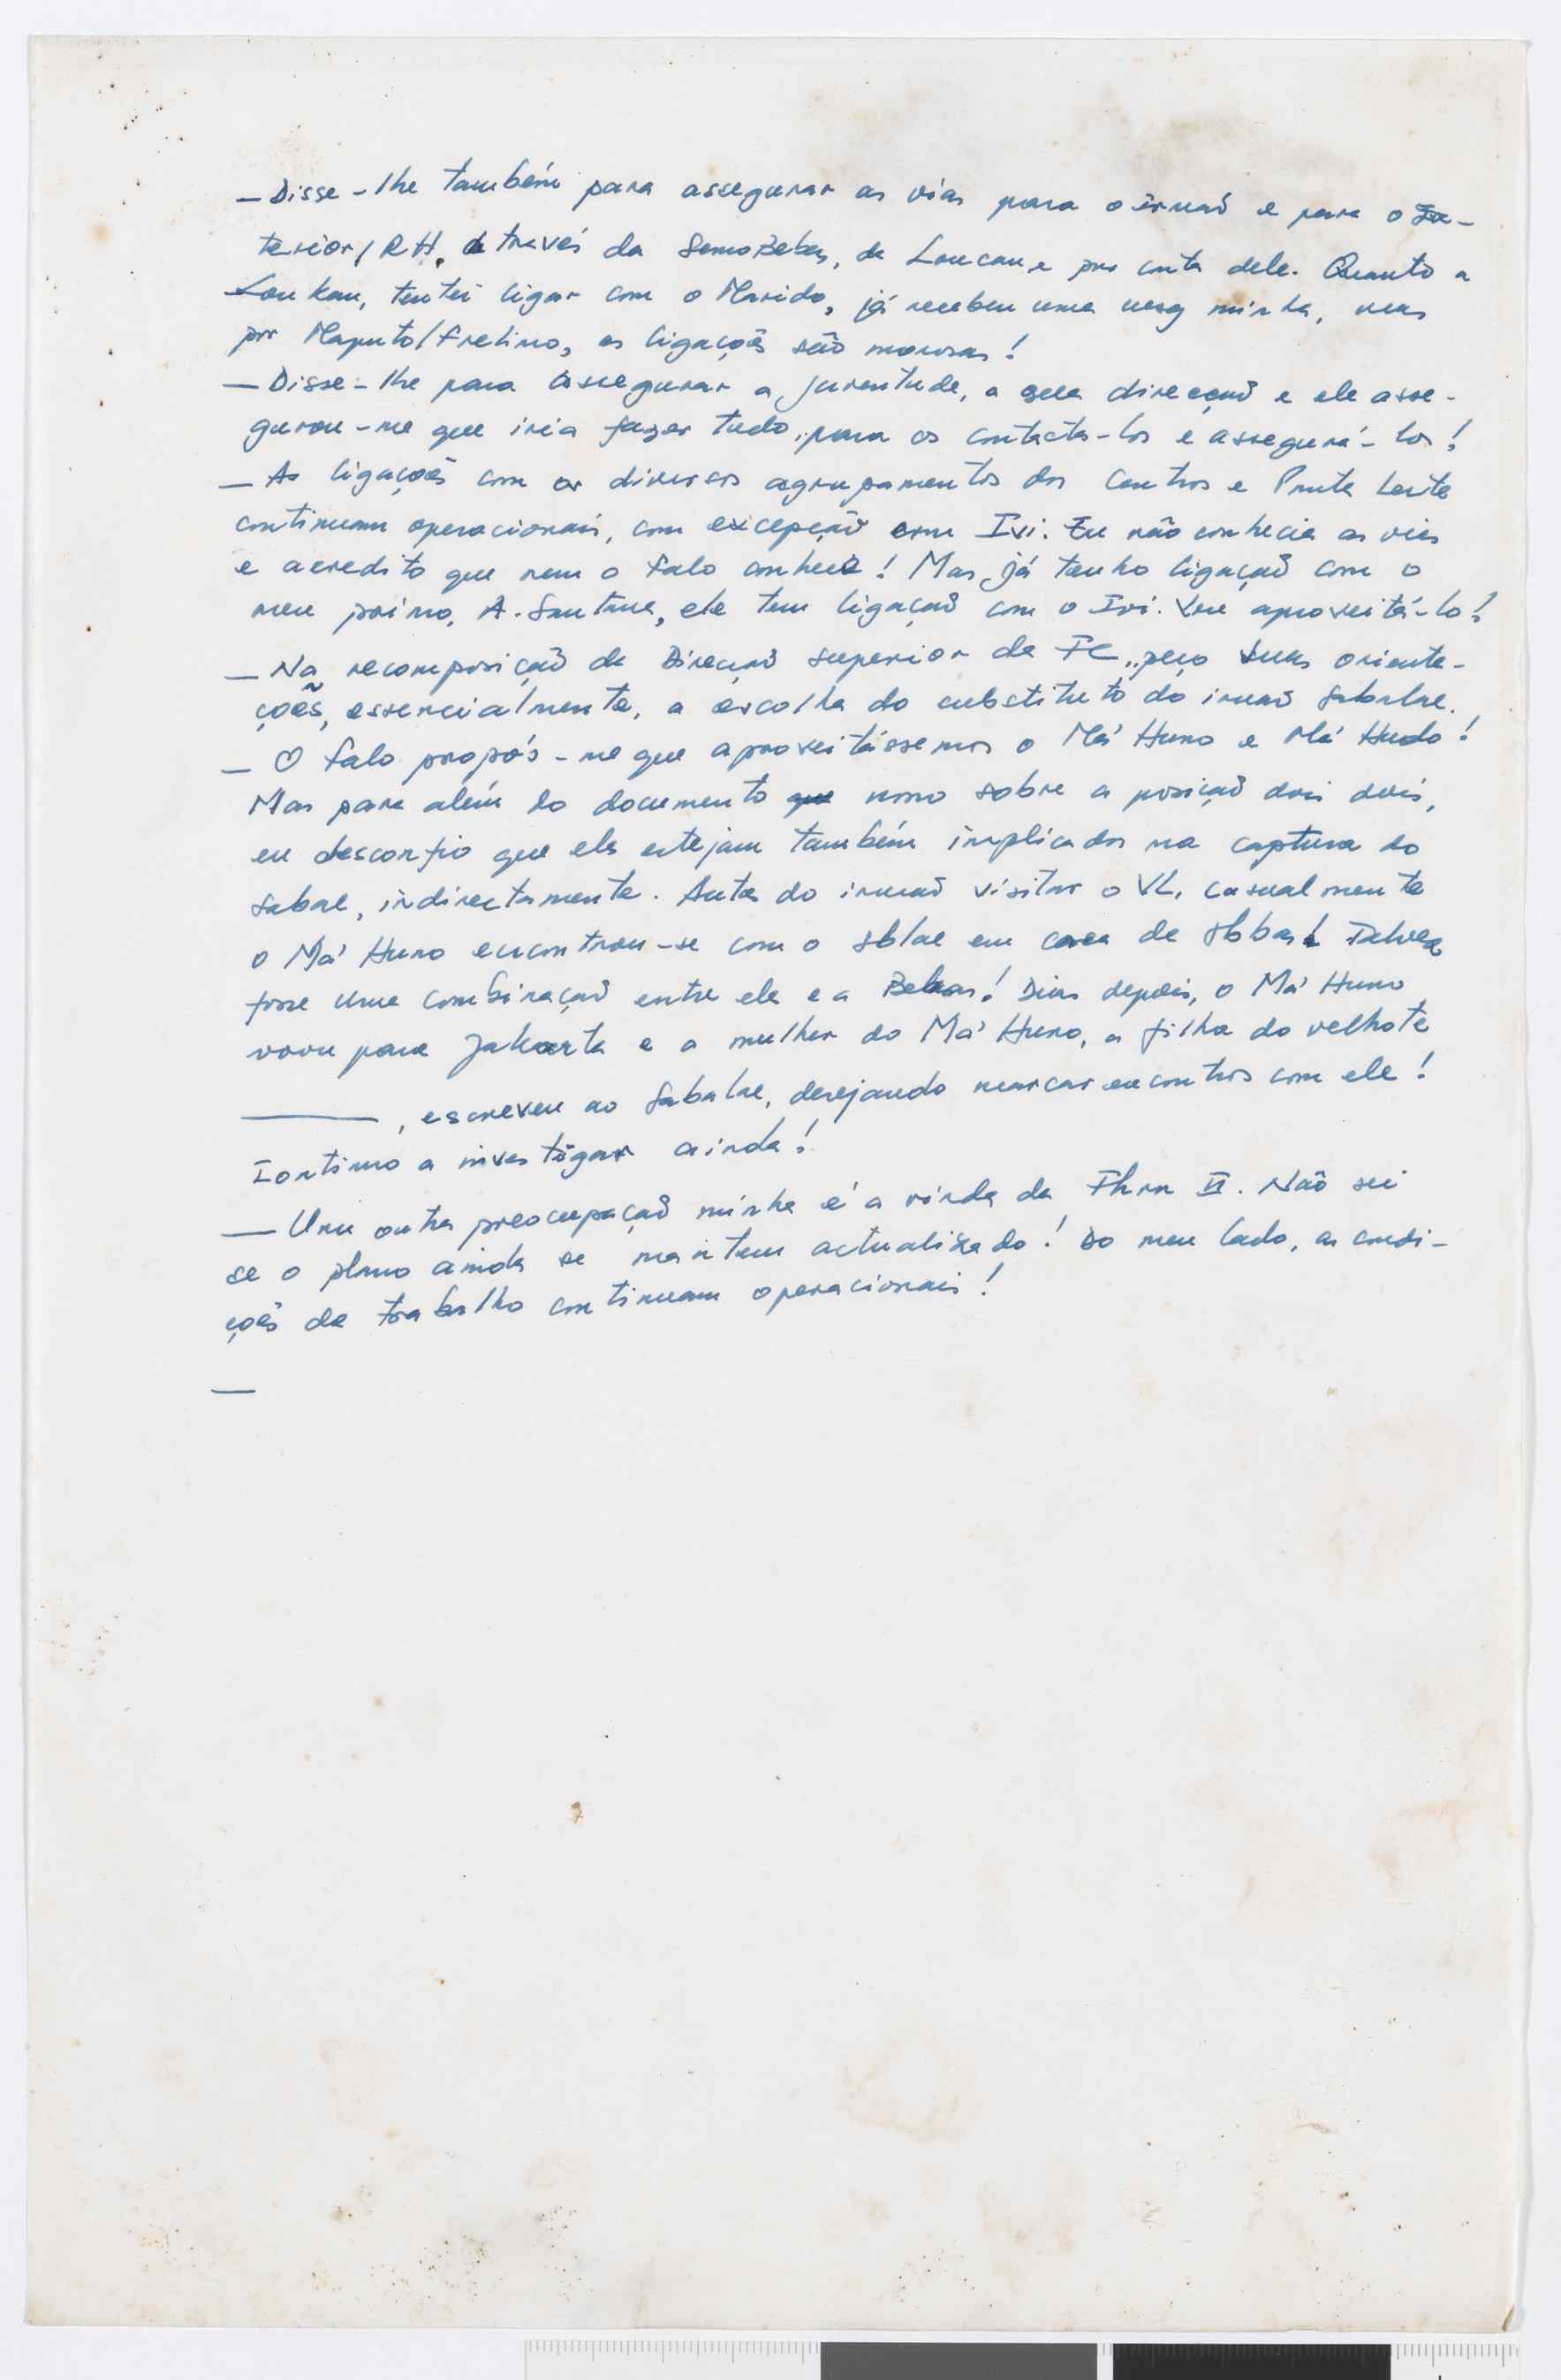 — Disse-lhe também para assegurar as vias para o irmaõ e para o
terior/RH, através da de e por conta dele. Quanto a
Loukan, tentei ligar com o Marido, já recebeu uma msg minha, mas
por Maputo/Fretino, as ligaçoẽs são morosas!
— Disse-lhe para assegurar a juventude, a sua direcçaõ e ele asse-
gurou-me que iria fazer tudo, para os contacta-los e assegurá-los!
— As ligaçoẽs com os diversos agrupamentos dos Centros e Ponta Leste
continuam operacionais, com excepçaõ com Ivi. Eu não conhecia as vias
e acredito que nem o Salo conhece! Mas já tenho ligaçaõ com o
meu primo, A. Santana, ele tem ligaçaõ com o Ivi. Vou aproveitá-lo!
— Na recomposiçaõ da Direcçaõ superior da FC, peço suas orienta-
çoẽs, essencialmente, a escolha do substituto do irmaõ Sabalae.
— O Salo propôs-me que aproveitássemos o Má Huno e Má Hudo!
Mas para além do documento que nosso sobre a posiçaõ dos dois,
eu desconfio que eles estejam também implicados na captura do
Sabae, indirectamente. Antes do irmaõ visitar o VL, casualmente
o Má Huno encontrou-se com o sblae em casa de Talvez
fosse uma combinaçaõ entre ele e a Bebas! Dias depois, o Má Huno
voou para Jakarta e a mulher do Má Huno, a filha do velhote
————, escreveu ao Sabalae, desejando marcar encontros com ele!
Continuo a investigar ainda!
— Uma outra preocupaçaõ minha é a vinda da II. Não sei
se o plano ainda se mantem actualizado! Do meu lado, as condi-
çoẽs de trabalho continuam operacionais!
—